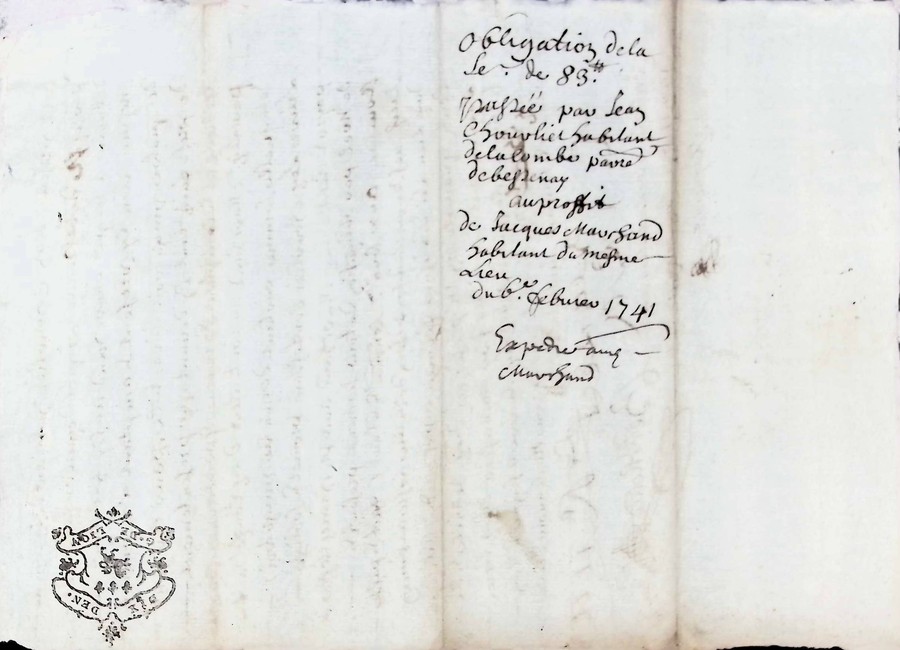 Obligation de la
Se.e de 83.#
passée par Jean
Chouvliet habitant
de la Combe parre
de bessenay
au proffit
de Jacques Marchand
habitant du mesme
Lieu
du 6.e febvrier 1741
Expedié aud
Marchand
G. DE LION
SIX DEN.